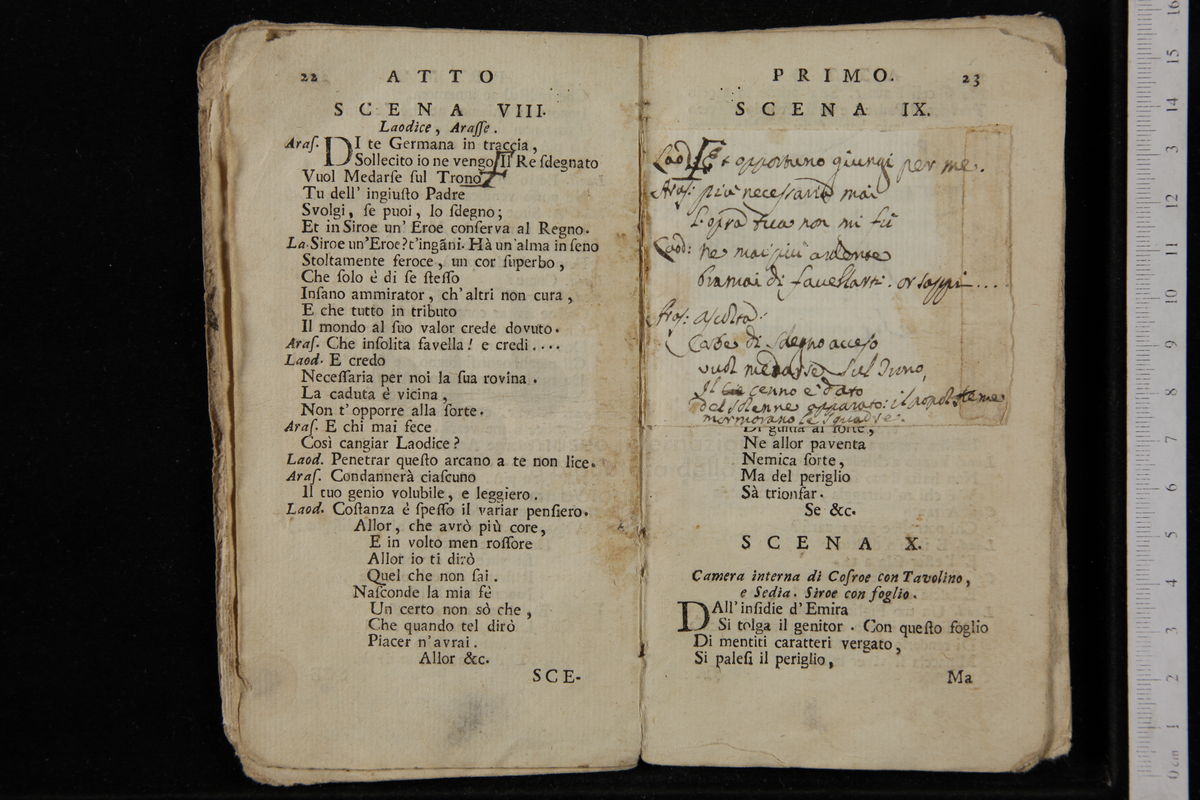 22 ATTO
SCENA VIII.
Laodice, Araſſe.
Araſ. DI te Germana in traccia,
Sollecito io ne vengo. Il Re ſdegnato
Vuol Medarſe ſul Trono.
Tu dell' ingiuſto Padre
Svolgi, ſe puoi, lo ſdegno;
Et in Siroe un' Eroe conſerva al Regno.
La. Siroe un'Eroe? t'ingãni. Hà un'alma in ſeno
Stoltamente feroce, un cor ſuperbo,
Che ſolo é di ſe ſteſſo
Inſano ammirator, ch'altri non cura,
E che tutto in tributo
Il mondo al ſuo valor crede dovuto.
Araſ. Che inſolita favella! e credi....
Laod. E credo
Neceſſaria per noi la ſua rovina.
La caduta è vicina,
Non t'opporre alla ſorte.
Araſ. E chi mai fece
Così cangiar Laodice?
Laod. Penetrar queſto arcano a te non lice.
Araſ. Condannerà ciaſcuno
Il tuo genio volubile, e leggiero.
Laod. Coſtanza é ſpeſſo il variar penſiero.
Allor, che avrò più core,
E in volto men roſſore
Allor io ti dirò
Quel che non ſai.
Naſconde la mia fè
Un certo non sò che,
Che quando tel dirò
Piacer n'avrai.
Allor &c.
SCE-
PRIMO. 23
SCENA IX.
Laod: opportuno giungi per me.
Aras: più necessaria mai
L'opra tua non mi fù
Laod: ne mai più ardente
bramai di favellarti. or sappi....
Aras: ascolta.
di sdegno acceso
vuol medarse sul Trono,
Il cenno è dato
del solenne apparato: il popol freme
mormorano le squadre.
Di guida al forte,
Ne allor paventa
Nemica ſorte,
Ma del periglio
Sà trionfar.
Se &c.
SCENA X.
Camera interna di Coſroe con Tavolino,
e Sedia. Siroe con foglio.
DAll'inſidie d'Emira
Si tolga il genitor. Con queſto foglio
Di mentiti caratteri vergato,
Si paleſi il periglio,
Ma
0 cm 1 2 3 4 5 6 7 8 9 10 11 12 13 14 15 16